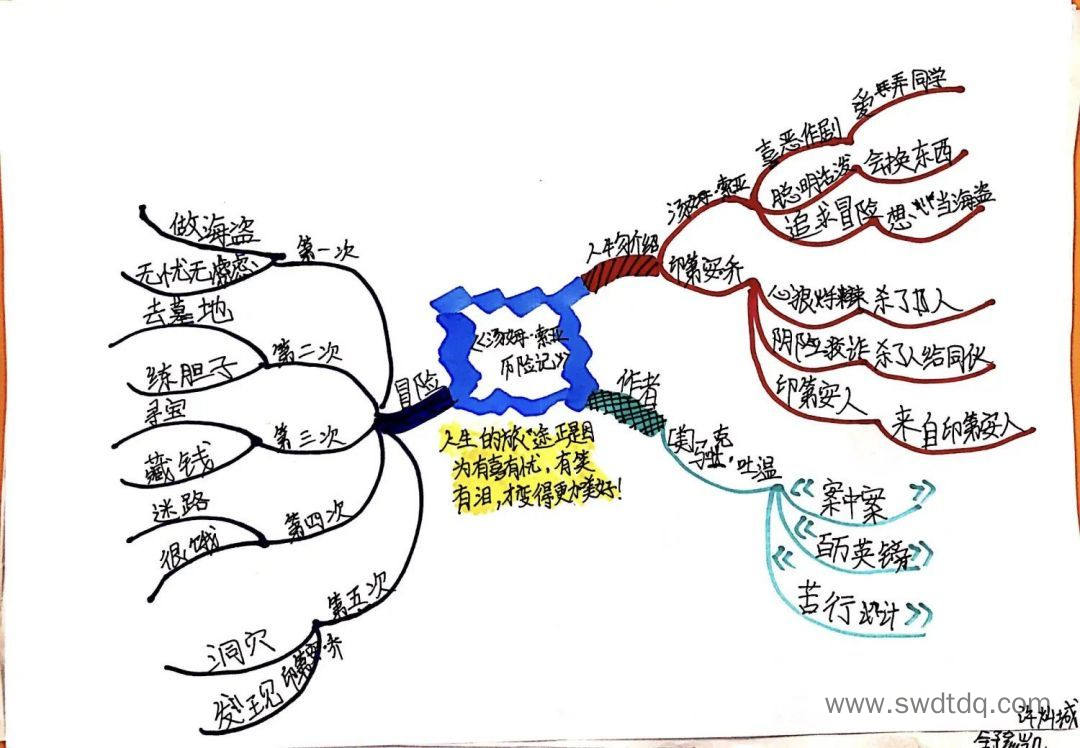 《汤姆·索亚
历险记》
人生的旅途正是因
为有喜有忧，有笑
有泪，才变得更加美好！
人物介绍
汤姆·索亚
喜恶作剧
爱捉弄同学
聪明活泼
会换东西
追求冒险
想当海盗
印第安·乔
心狠手辣
杀了
人
阴险狡诈
杀了人给同伙
印第安人
来自印第安人
作者
[美]马克·吐温
《案中案》
《百万英镑》
《苦行
计》
冒险
第一次
做海盗
无忧无虑
第二次
去墓地
练胆子
第三次
寻宝
藏钱
第四次
迷路
很饿
第五次
洞穴
发现印第安·乔
www.swdtdq.com